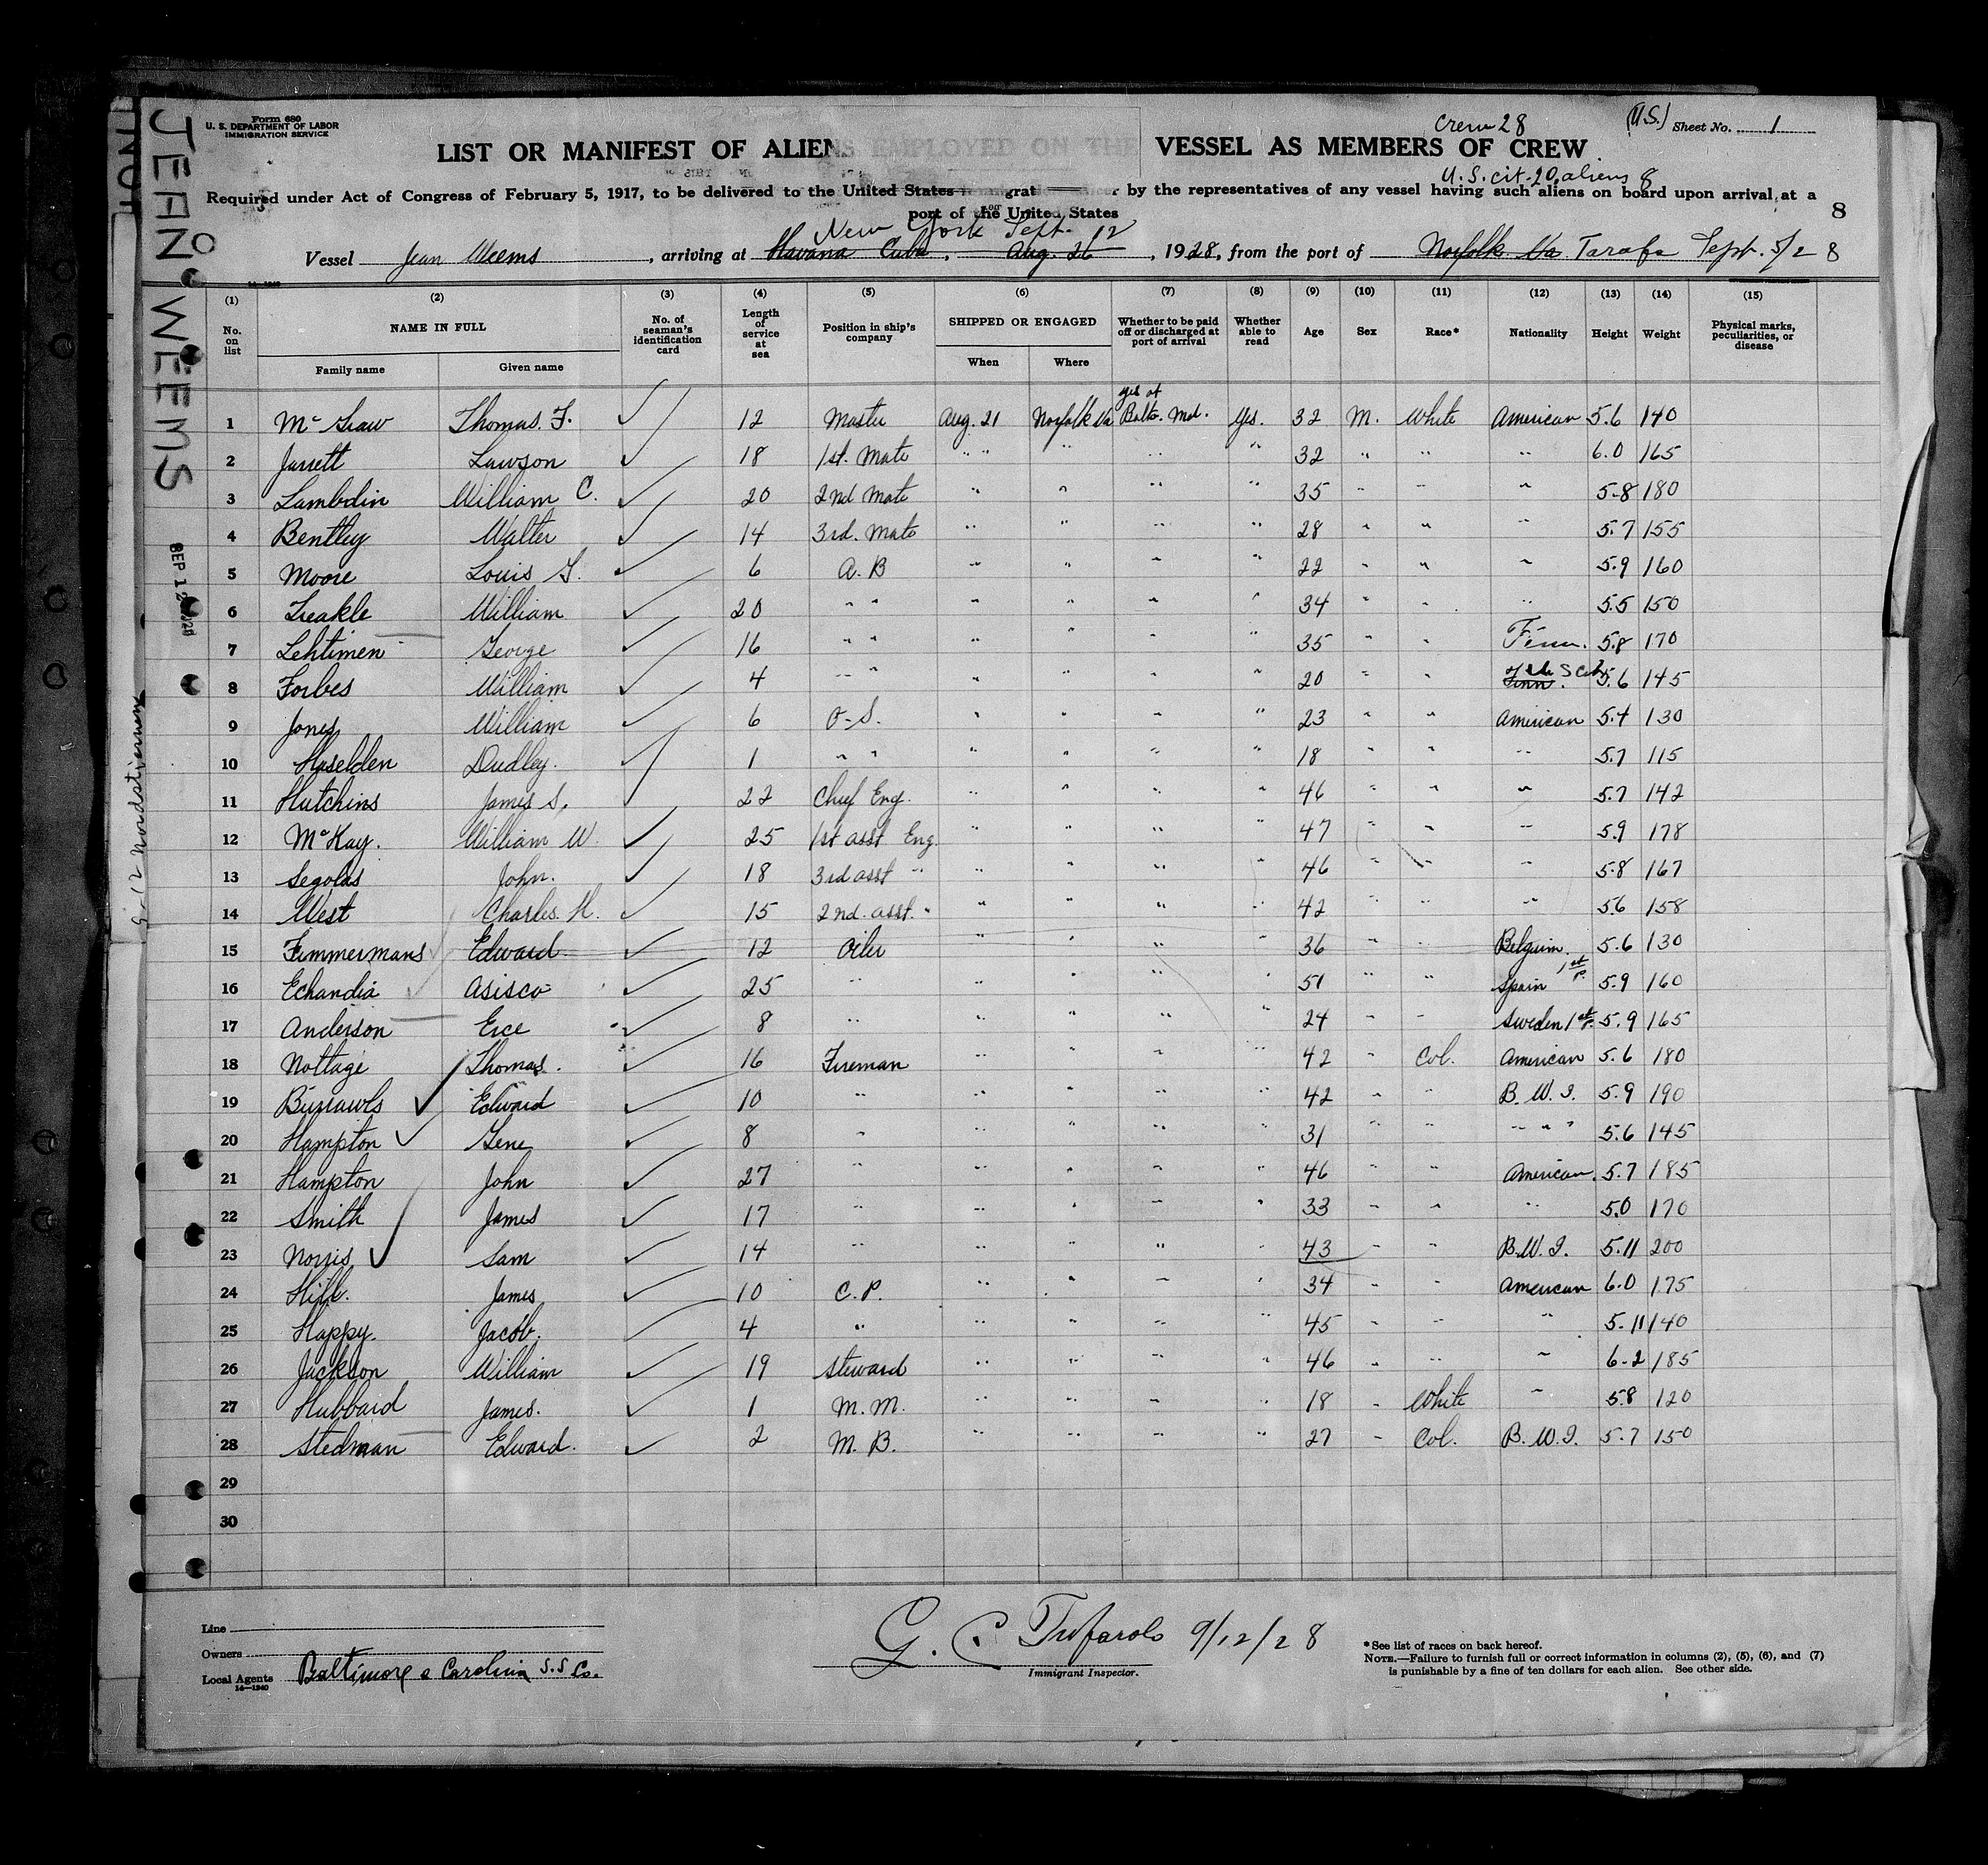 Form 680
U. S. DEPARTMENT OF LABOR
IMMIGRATION SERVICE
Crew 28
(U.S.) Sheet No. 1
LIST OR MANIFEST OF ALIENS EMPLOYED ON THE VESSEL AS MEMBERS OF CREW
U.S. cit-20, aliens 8
Required under Act of Congress of February 5, 1917, to be delivered to the United States by the representatives of any vessel having such aliens on board upon arrival at a
port of the United States
8
New York Sept. 12
Vessel Jean Weems, arriving at Havana Cuba, Aug. 26, 1928, from the port of Norfolk Va Tarafa Sept. 5/28
(1) (2) (3) (4) (5) (6) (7) (8) (9) (10) (11) (12) (13) (14) (15)
No. on list NAME IN FULL Family name Given name No. of seaman's identification card Length of service at sea Position in ship's company SHIPPED OR ENGAGED When Where Whether to be paid off or discharged at port of arrival Whether able to read Age Sex Race* Nationality Height Weight Physical marks, peculiarities, or disease
yes at
1 McGraw Thomas F. ✓ 12 Master Aug. 21 Norfolk Va Balto. Md. Yes. 32 M. White American 5.6 140
2 Jarrett Lawson ✓ 18 1st. Mate " " " " " 32 " " " 6.0 165
3 Lambdin William C. ✓ 20 2nd Mate " " " " 35 " " " 5-8 180
4 Bentley Walter ✓ 14 3rd. Mate " " " " 28 " " " 5.7 155
5 Moore Louis ✓ 6 A. B " " " " 22 " " " 5.9 160
6 William ✓ 20 " " " " " " 34 " " " 5.5 150
7 Lehtimen George ✓ 16 " " " " " " 35 " " Finn. 5.8 170
8 Forbes William ✓ 4 " " " " " " 20 " " Finn. U S Cit 5.6 145
9 Jones William ✓ 6 O-S. " " " " 23 " " American 5.4 130
10 Haselden Dudley. ✓ 1 " " " " " " 18 " " " 5.7 115
11 Hutchins James S. ✓ 22 Chief Eng. " " " " 46 " " " 5.7 142
12 McKay. William W. ✓ 25 1st asst Eng. " " " " 47 " " " 5.9 178
13 Segolas John. ✓ 18 3rd asst " " " " " 46 " " " 5.8 167
14 West Charles H. ✓ 15 2nd. asst. " " " " " 42 " " " 5.6 158
15 Timmermans Edward ✓ 12 Oiler " " " " 36 " " Belguim. 5.6 130
16 Echandia Asisco ✓ 25 " " " " " 51 " " Spain 1st P. 5.9 160
17 Anderson Erce ✓ 8 " " " " " 24 " " Sweden 1st P. 5.9 165
18 Nottage Thomas. ✓ 16 Fireman " " " " 42 " Col. American 5.6 180
19 Burrawls ✓ Edward ✓ 10 " " " " " 42 " " B. W. I. 5.9 190
20 Hampton ✓ Gene ✓ 8 " " " " " 31 " " " " " 5.6 145
21 Hampton John ✓ 27 " " " " " 46 " " American. 5.7 185
22 Smith James ✓ 17 " " " " " 33 " " " 5.0 170
23 Norris ✓ Sam ✓ 14 " " " " " 43 " " B.W.I. 5.11 200
24 Hill. James ✓ 10 C. P. " " " " 34 " " American 6.0 175
25 Happy. Jacob. ✓ 4 " " " " " 45 " " " 5.11 140
26 Jackson William ✓ 19 Steward " " " " 46 " " " 6-2 185
27 Hubbard James. ✓ 1 M. M. " " " " 18 " White " 5.8 120
28 Stedman Edward. ✓ 2 M. B. " " " " 27 " Col. B. W. I. 5.7 150
29
30
Line
Owners
Local Agents Baltimore & Carolina S.S Co.
14—1240
G. C. Tufarolo 9/12/28
Immigrant Inspector.
*See list of races on back hereof.
NOTE.—Failure to furnish full or correct information in columns (2), (5), (6), and (7)
is punishable by a fine of ten dollars for each alien. See other side.
JEAN WEEMS
SEP 12 1928
9-12 Nordstiernan